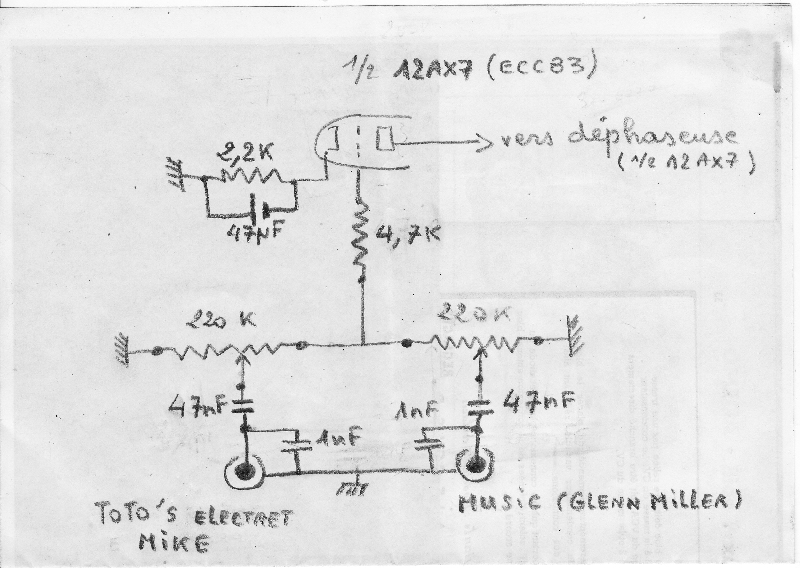 1/2 12AX7 (ECC83)
vers déphaseuse
(1/2 12AX7)
2,2K
47µF
4,7K
220K
220K
47nF
1nF
1nF
47nF
TOTO'S ELECTRET
MIKE
MUSIC (GLENN MILLER)